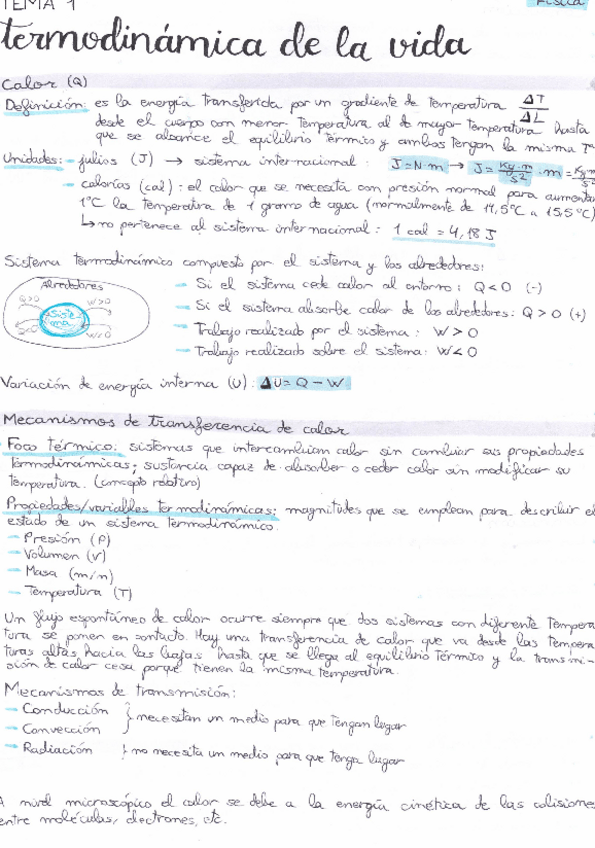 TEMA 1
Física
termodinámica de la vida
Calor (Q)
Definición: es la energía transferida por un gradiente de temperatura ΔT/ΔL
desde el cuerpo con menor temperatura al de mayor temperatura hasta
que se alcance el equilibrio térmico y ambos tengan la misma Tª
Unidades: - julios (J) → sistema internacional: J=N·m → J= Kg·m/s² ·m = Kg·m/s²
- calorías (cal): el calor que se necesita con presión normal para aumentar
1ºC la temperatura de 1 gramo de agua (normalmente de 14,5ºC a 15,5ºC)
↳ no pertenece al sistema internacional: 1 cal = 4,18 J
Sistema termodinámico compuesto por el sistema y los alrededores:
Alrededores
Q>0 W>0
Sistema
Q<0 W<0
- Si el sistema cede calor al entorno: Q<0 (-)
- Si el sistema absorbe calor de los alrededores: Q>0 (+)
- Trabajo realizado por el sistema: W>0
- Trabajo realizado sobre el sistema: W<0
Variación de energía interna (U): ΔU= Q - W
Mecanismos de transferencia de calor
Foco térmico: sistemas que intercambian calor sin cambiar sus propiedades
termodinámicas; sustancia capaz de absorber o ceder calor sin modificar su
temperatura. (concepto relativo)
Propiedades/variables termodinámicas: magnitudes que se emplean para describir el
estado de un sistema termodinámico.
- Presión (P)
- Volumen (V)
- Masa (m/n)
- Temperatura (T)
Un flujo espontáneo de calor ocurre siempre que dos sistemas con diferente tempera
tura se ponen en contacto. Hay una transferencia de calor que va desde las tempera
turas altas hacia las bajas hasta que se llega al equilibrio térmico y la transmi-
sión de calor cesa porque tienen la misma temperatura.
Mecanismos de transmisión:
- Conducción
- Convección } necesitan un medio para que tengan lugar
- Radiación } no necesita un medio para que tenga lugar
A nivel microscópico el calor se debe a la energía cinética de las colisiones
entre moléculas, electrones, etc.